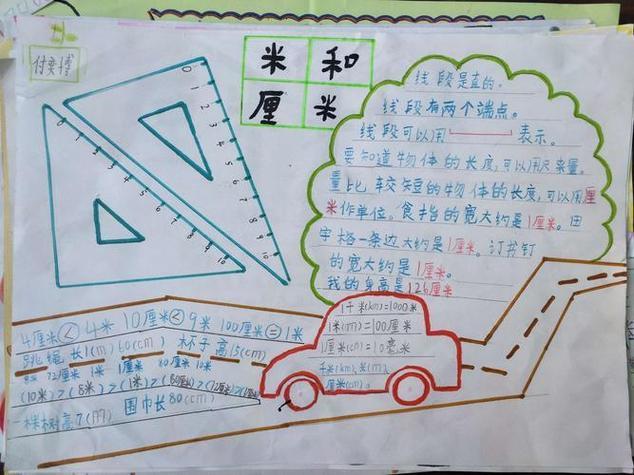 付奕博
米和
厘米
线段是直的。
线段有两个端点。
线段可以用 表示。
要知道物体的长度,可以用尺来量。
量比较短的物体的长度,可以用厘
米作单位。食指的宽大约是1厘米。田
字格一条边大约是1厘米。订书钉
的宽大约是1厘米。
我的身高是126厘米
0 1 2 3 4 5 6 7 8 9 10
0 1 2 3 4 5 6 7 8 9 10
4厘米<4米 10厘米<9米 100厘米=1米
跳绳长1(m)60(cm) 杯子高15(cm)
72厘米 1米 1厘米 80厘米 10米
(10米)>(8米)>(1米)>(80厘米)>(72厘米)>
一棵树高7(m) 围巾长80(cm)
1千米(km)=1000米
1米(m)=100厘米
1厘米(cm)=10毫米
千米(km)、米(m)、
厘米(cm)。